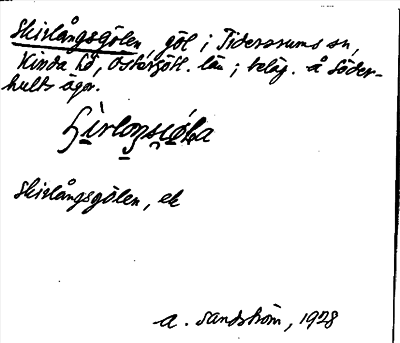 Skirlångsgölen, göl i Tidersrums sn,
Kinda hd, Östergötl. län; beläg. å Söder-
hults ägor.
Skirlångsgölen, ek
A. Sandström, 1928